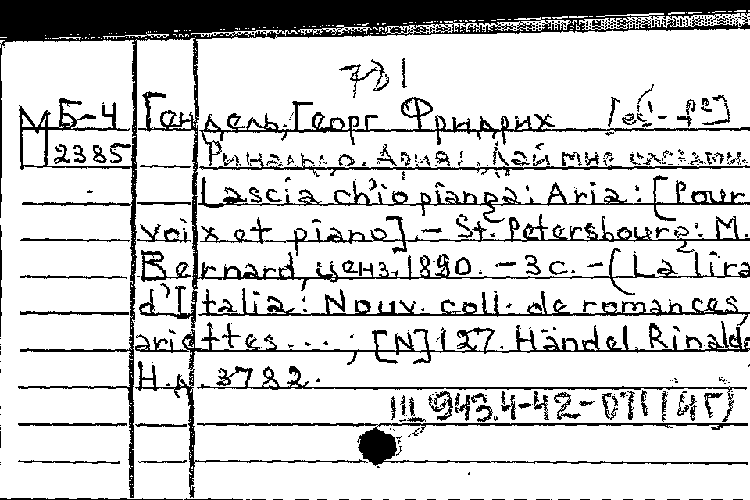 781
М Б-4 Гендель, Георг Фридрих [es¹-f²]
2385 Ринальдо. Ария: „Дай мне слезами
Lascia ch'io pianga: Aria: [Pour
voix et piano]. - St. Petersbourg: M.
Bernard, ценз. 1890. - 3 с. - (La lira
d'Italia: Nouv. coll. de romances,
ariettes...; [N] 127. Händel. Rinaldo
Н.д. 3782.
Ш 943.4-42-071 (4Г)